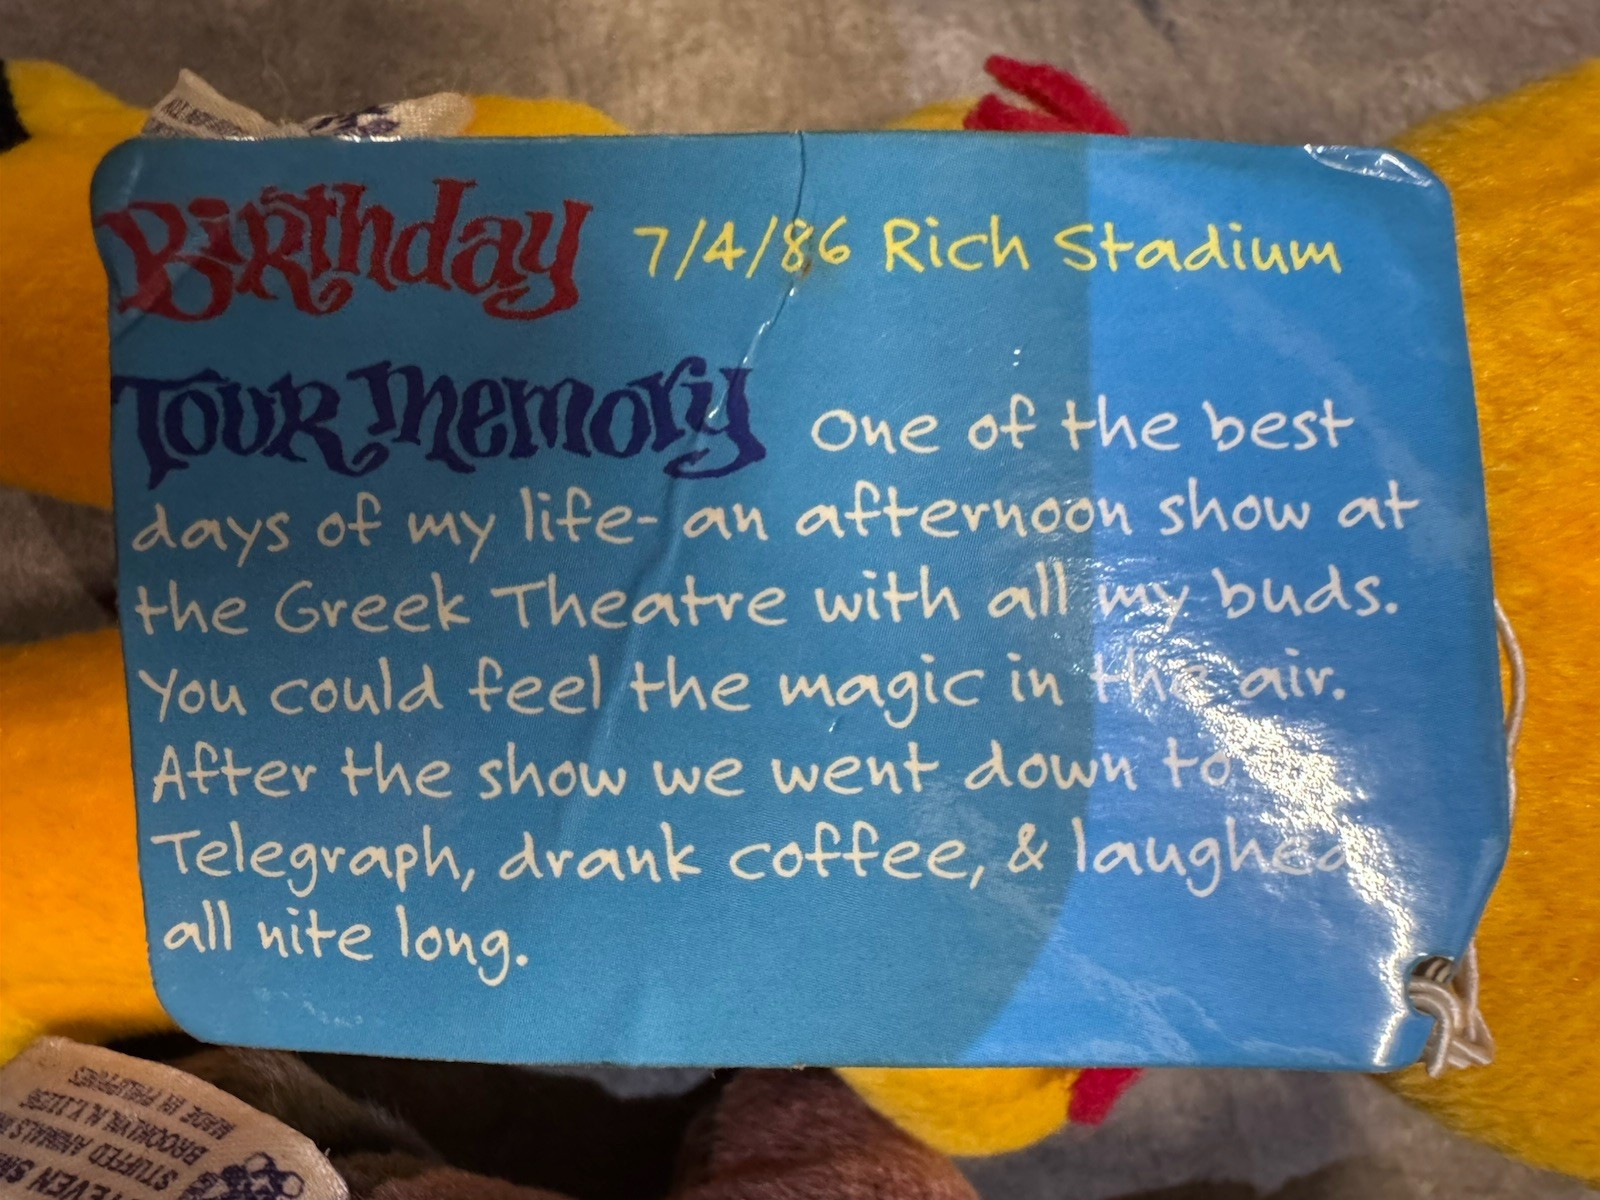 Birthday 7/4/86 Rich Stadium
Tour Memory One of the best
days of my life- an afternoon show at
the Greek Theatre with all my buds.
You could feel the magic in the air.
After the show we went down to
Telegraph, drank coffee, & laughed
all nite long.
STUFFED ANIMALS
BROOKLYN, N.Y. 11232
MADE IN PHILIPPINES